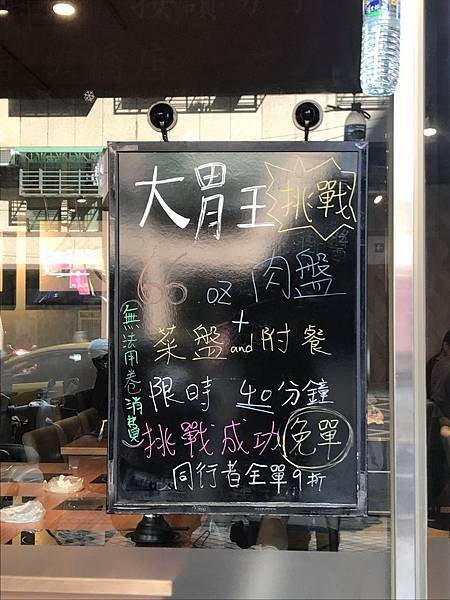 大胃王挑戰
66.oz肉盤
+
菜盤and附餐
限時 40分鐘
挑戰成功免單
同行者全單9折
(無法用卷消費)